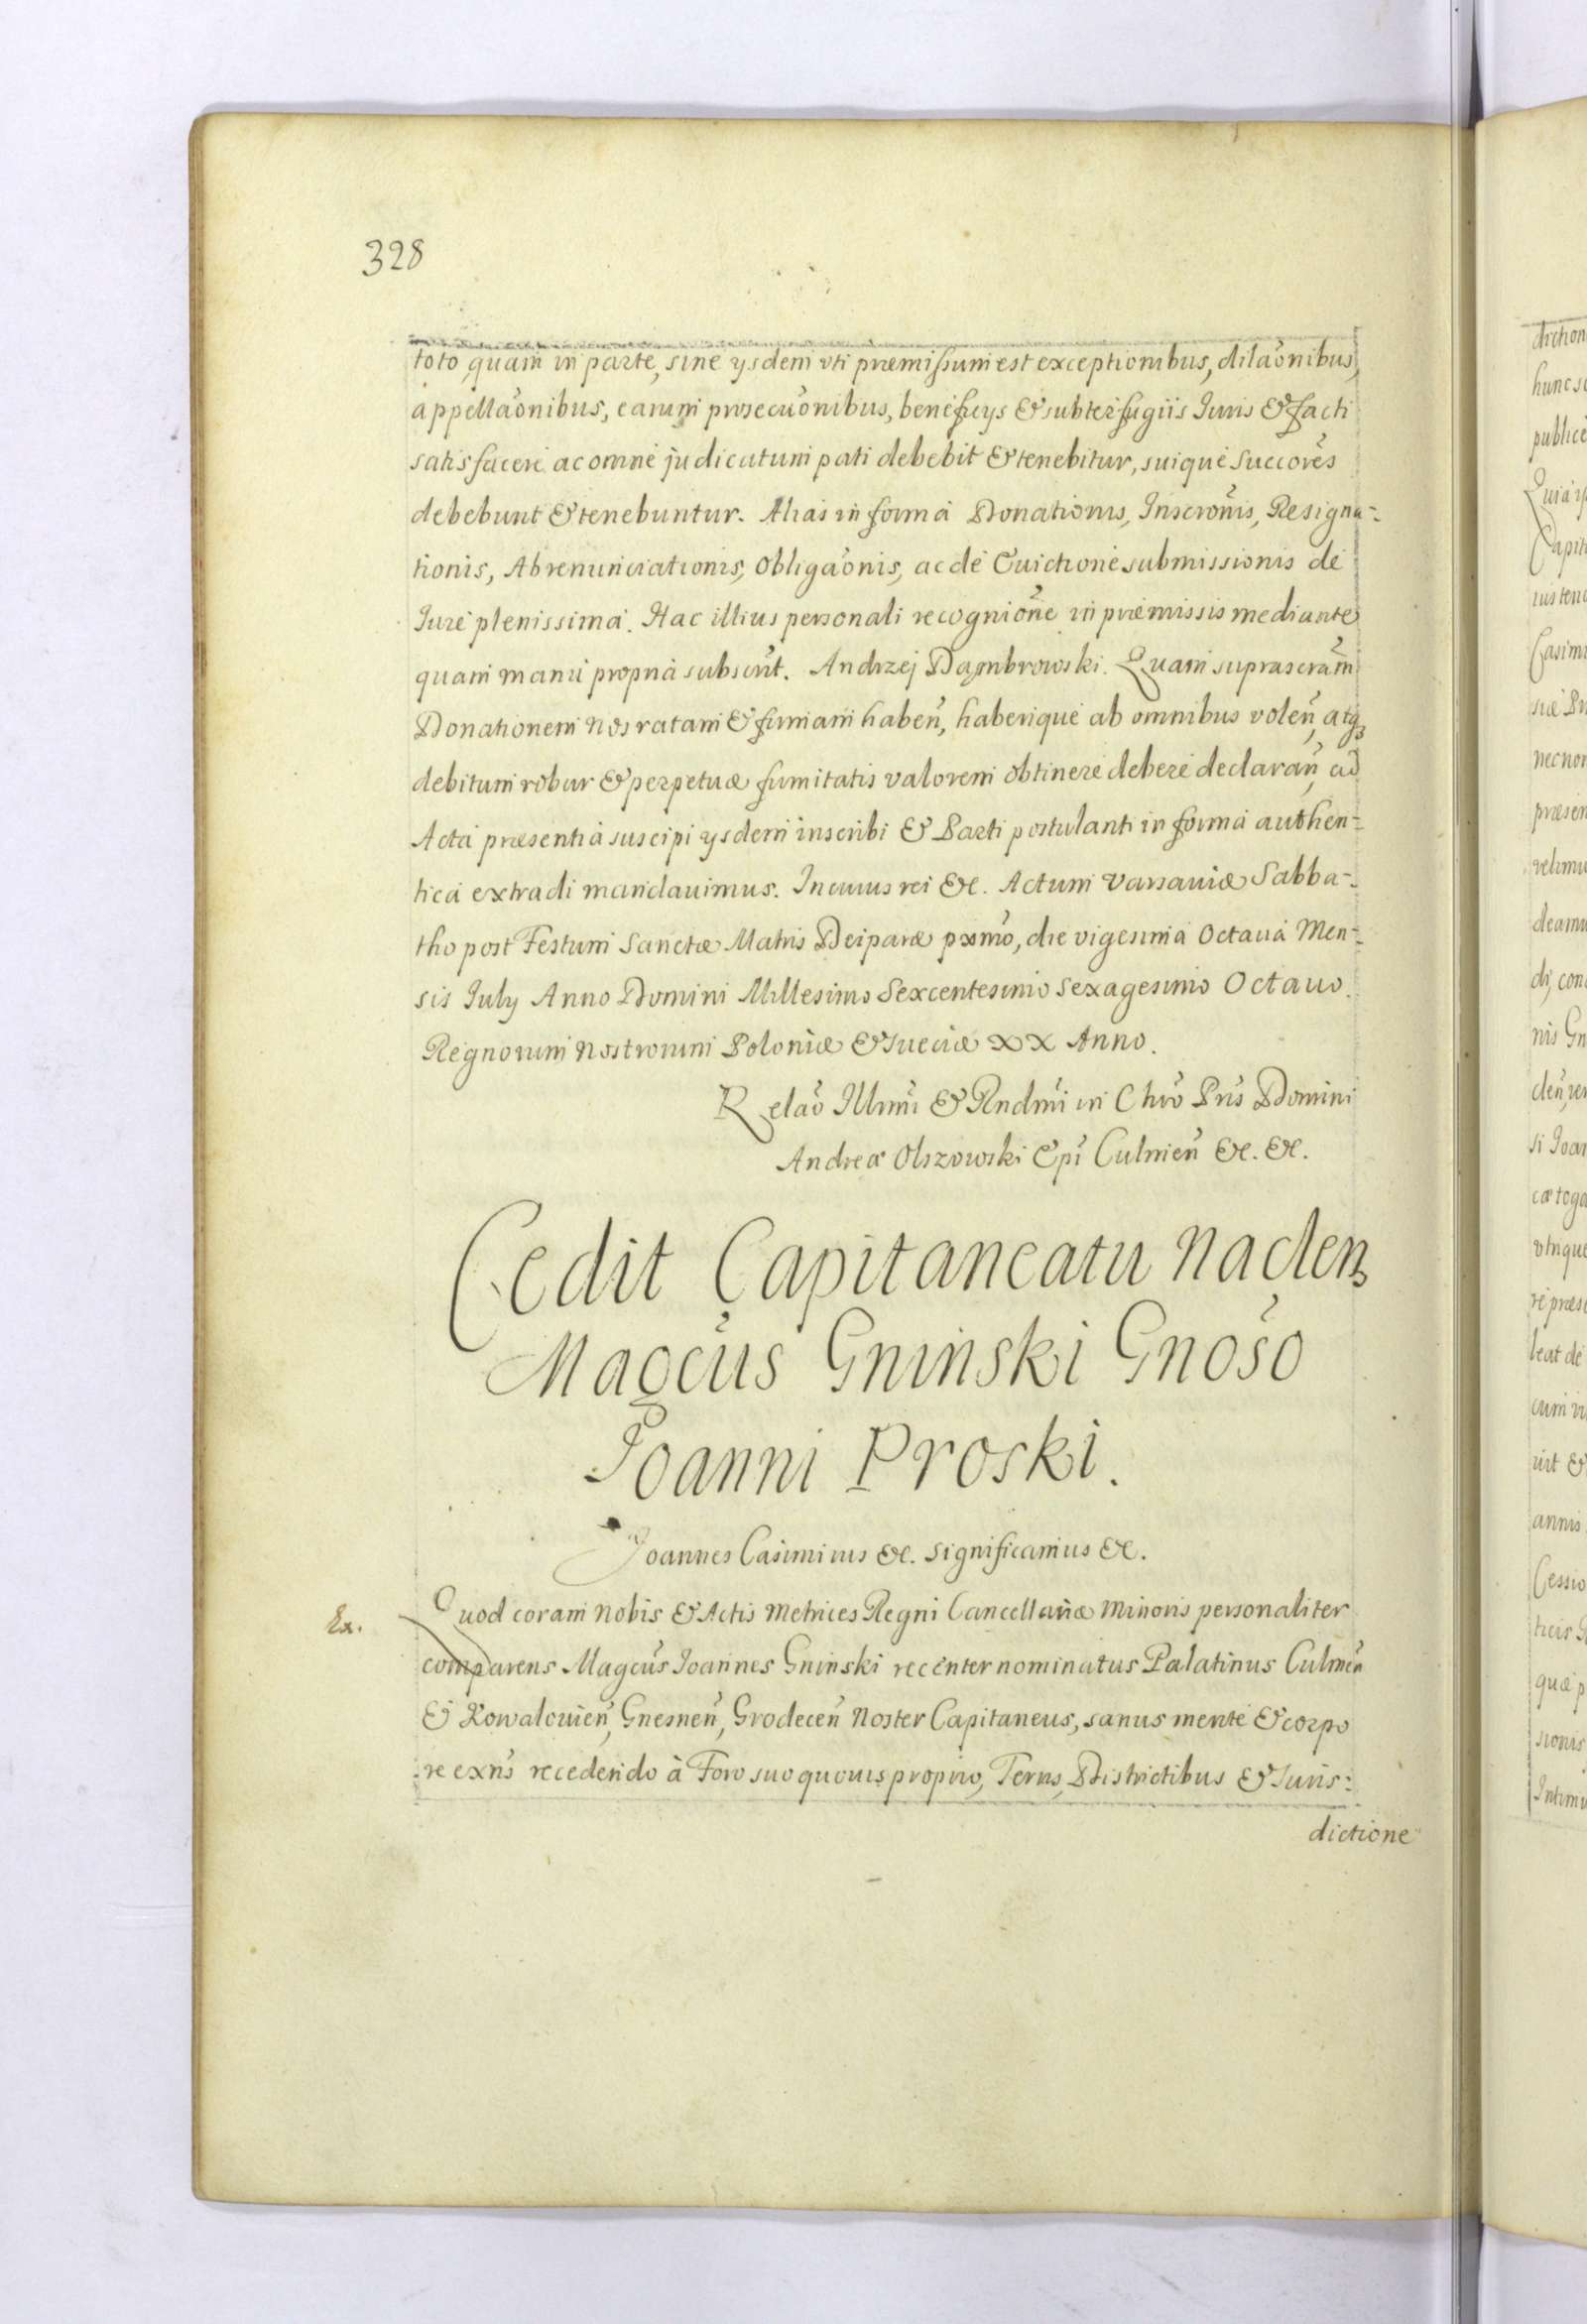 328
toto quam in parte, sine ysdem vti præmissum est exceptionibus, dilaõnibus,
appellaõnibus, earum prosecuõnibus, beneficys & subterfugiis Iuris & facti
satisfacere ac omne judicatum pati debebit & tenebitur, suique Succorẽs
debebunt & tenebuntur. Alias in forma Donationis, Inscrõnis, Resigna-
tionis, Abrenunciationis, Obligaõnis, ac de Euictione submissionis de
Iure plenissima. Hac illius personali recogniõne in præmissis mediante
quam manu propria subscrit. Andrzej Dambrowski. Quam suprascram̃
Donationem Nos ratam & firmam habeñ, haberique ab omnibus voleñ, atq3
debitum robur & perpetuæ firmitatis valorem obtinere debere declarañ, ad
Acta præsentia suscipi ysdem inscribi & Parti postulanti in forma authen-
tica extradi mandauimus. In cuius rei &c. Actum Varsauiæ Sabba-
tho post Festum Sanctæ Matris Deiparæ pxmo, die vigesima Octaua Men-
sis July Anno Domini Millesimo Sexcentesimo Sexagesimo Octauo.
Regnorum Nostrorum Poloniæ & Sueciæ XX Anno.
Relaõ Illmi & Rndmi in Chro Pris Domini
Andreæ Olszowski Epi Culmeñ &c. &c.
Cedit Capitaneatu Naclen3
Magcus Gninski Gnoso
Ioanni Proski.
Ioannes Casimirus &c. significamus &c.
Ex.
Quod coram Nobis & Actis Metrices Regni Cancellariæ Minoris personaliter
comparens Magcus Ioannes Gninski recenter nominatus Palatinus Culmeñ
& Kowalouieñ, Gnesneñ, Grodeceñ Noster Capitaneus, sanus mente & corpo
re exns recedendo à Foro suo quouis proprio, Terris, Districtibus & Iuris-
dictione